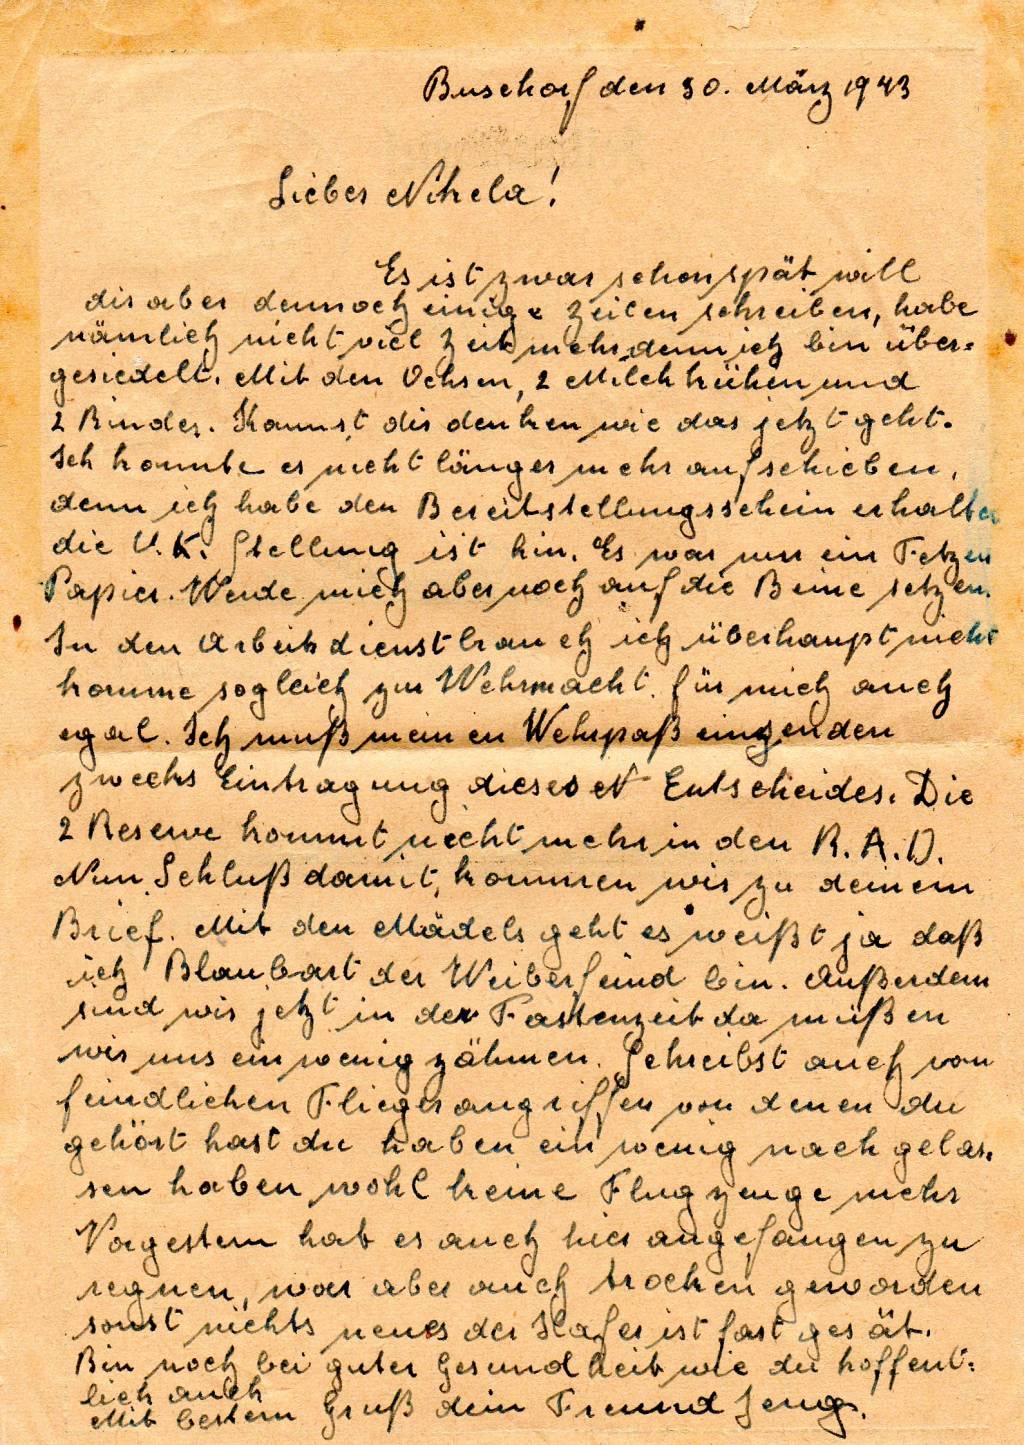 Buschorf den 30. März 1943
Liebes Nikela!
Es ist zwar schon spät will
dir aber dennoch einige Zeilen schreiben, habe
nämlich nicht viel Zeit mehr, denn ich bin über=
gesiedelt. Mit den Ochsen, 2 Milchkühen und
2 Rinder. Kannst dir denken wie das jetzt geht.
Ich konnte es nicht länger mehr aufschieben,
denn ich habe den Bereitstellungsschein erhalten
die U.K. Stellung ist hin. Es war nur ein Fetzen
Papier. Werde mich aber noch auf die Beine setzen.
In den Arbeitsdienst brauch ich überhaupt nicht
komme sogleich zur Wehrmacht. für mich auch
egal. Ich muß meinen Wehrpaß einsenden
zwecks Eintragung dieses Entscheides. Die
2 Reserve kommt nicht mehr in den R.A.D.
Nun Schluß damit, kommen wir zu deinem
Brief. Mit den Mädels geht es weißt ja daß
ich Blaubart der Weiberfeind bin. Außerdem
sind wir jetzt in der Fastenzeit da müßen
wir uns ein wenig zähmen. Schreibst auch von
feindlichen Fliegerangriffen von denen du
gehört hast du haben ein wenig nach gelas.
sen haben wohl keine Flugzeuge mehr
Vorgestern hat es auch hier angefangen zu
regnen, war aber auch trocken geworden
sonst nichts neues der Hafer ist fast gesät.
Bin noch bei guter Gesundheit wie du hoffent=
lich auch
Mit bestem Gruß dein Freund Jeng.